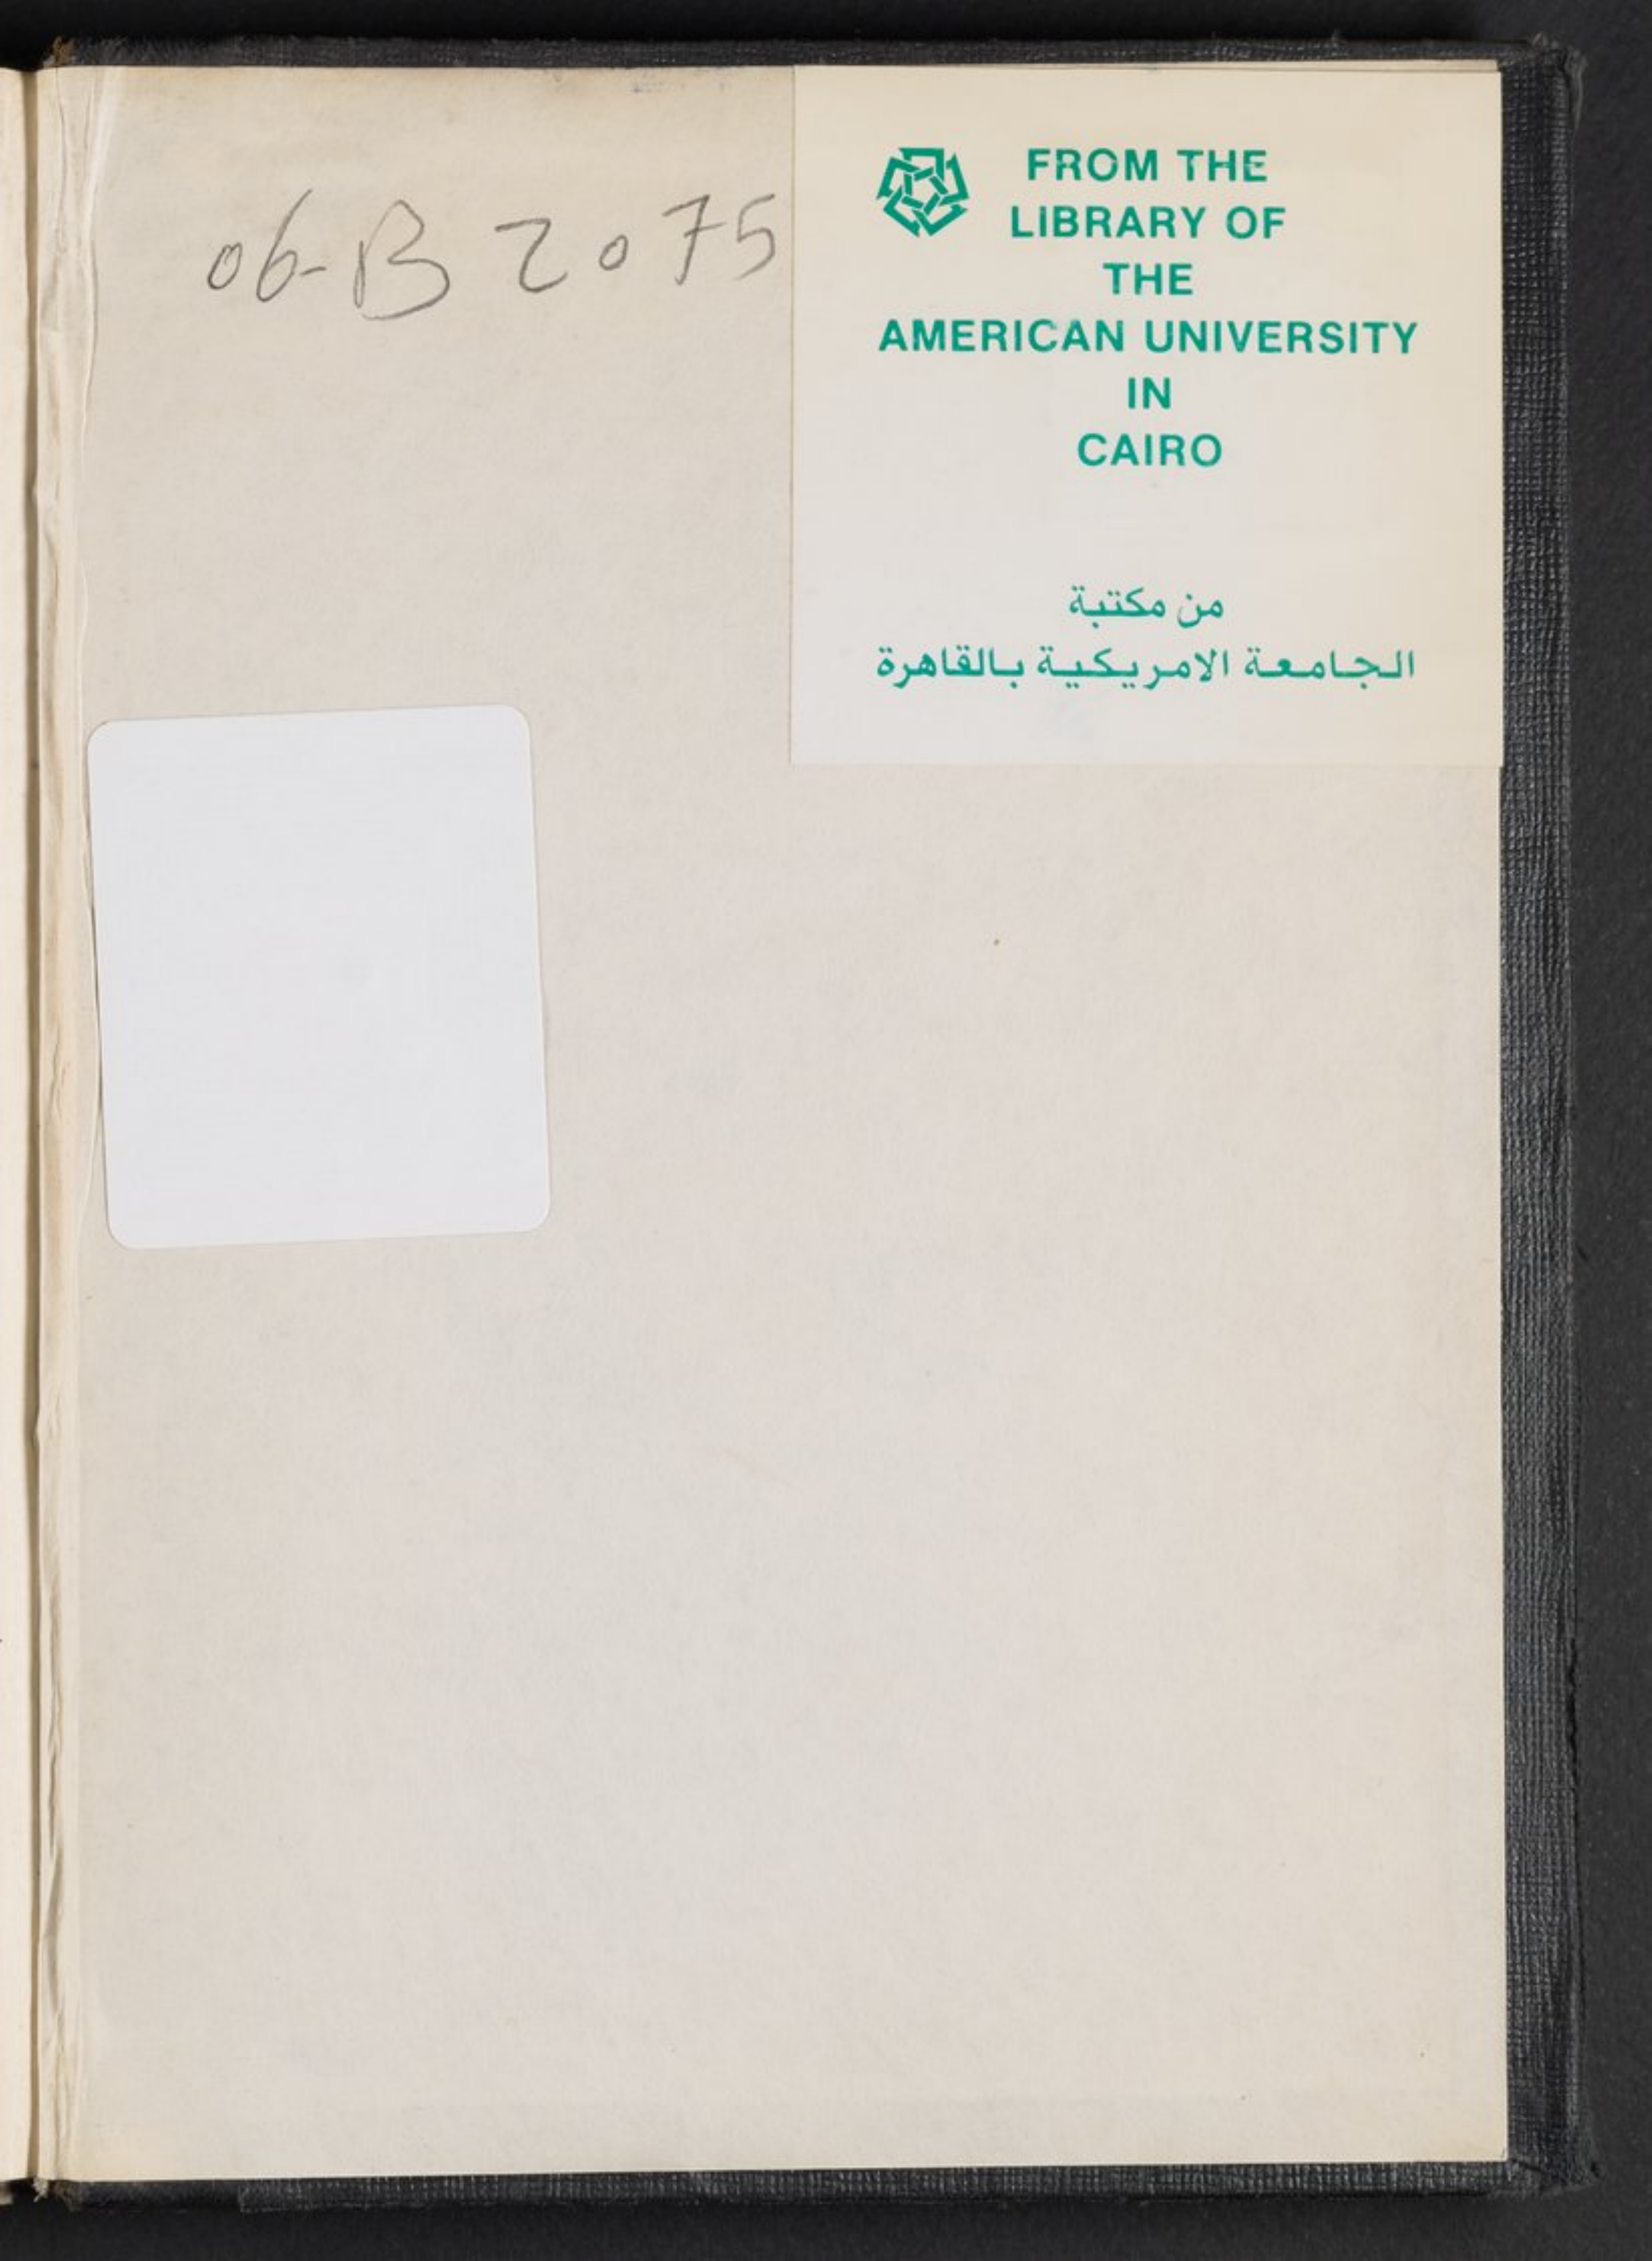 06-B 2075
FROM THE
LIBRARY OF
THE
AMERICAN UNIVERSITY
IN
CAIRO
من مكتبة
الجامعة الامريكية بالقاهرة